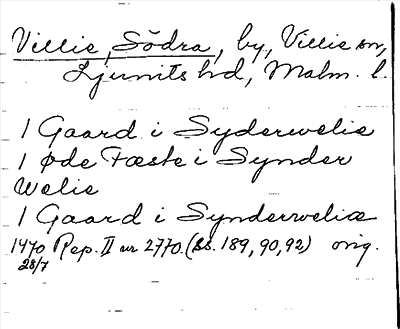 Villie, Södra, by, Villie sn,
Ljunits hd, Malm. l.
1 Gaard i Syderwelie
1 Øde Fæste i Synder
Welie
1 Gaard i Synderweliæ
1470 Rep. II nr 2770. (ss. 189, 90, 92) orig.
28/7